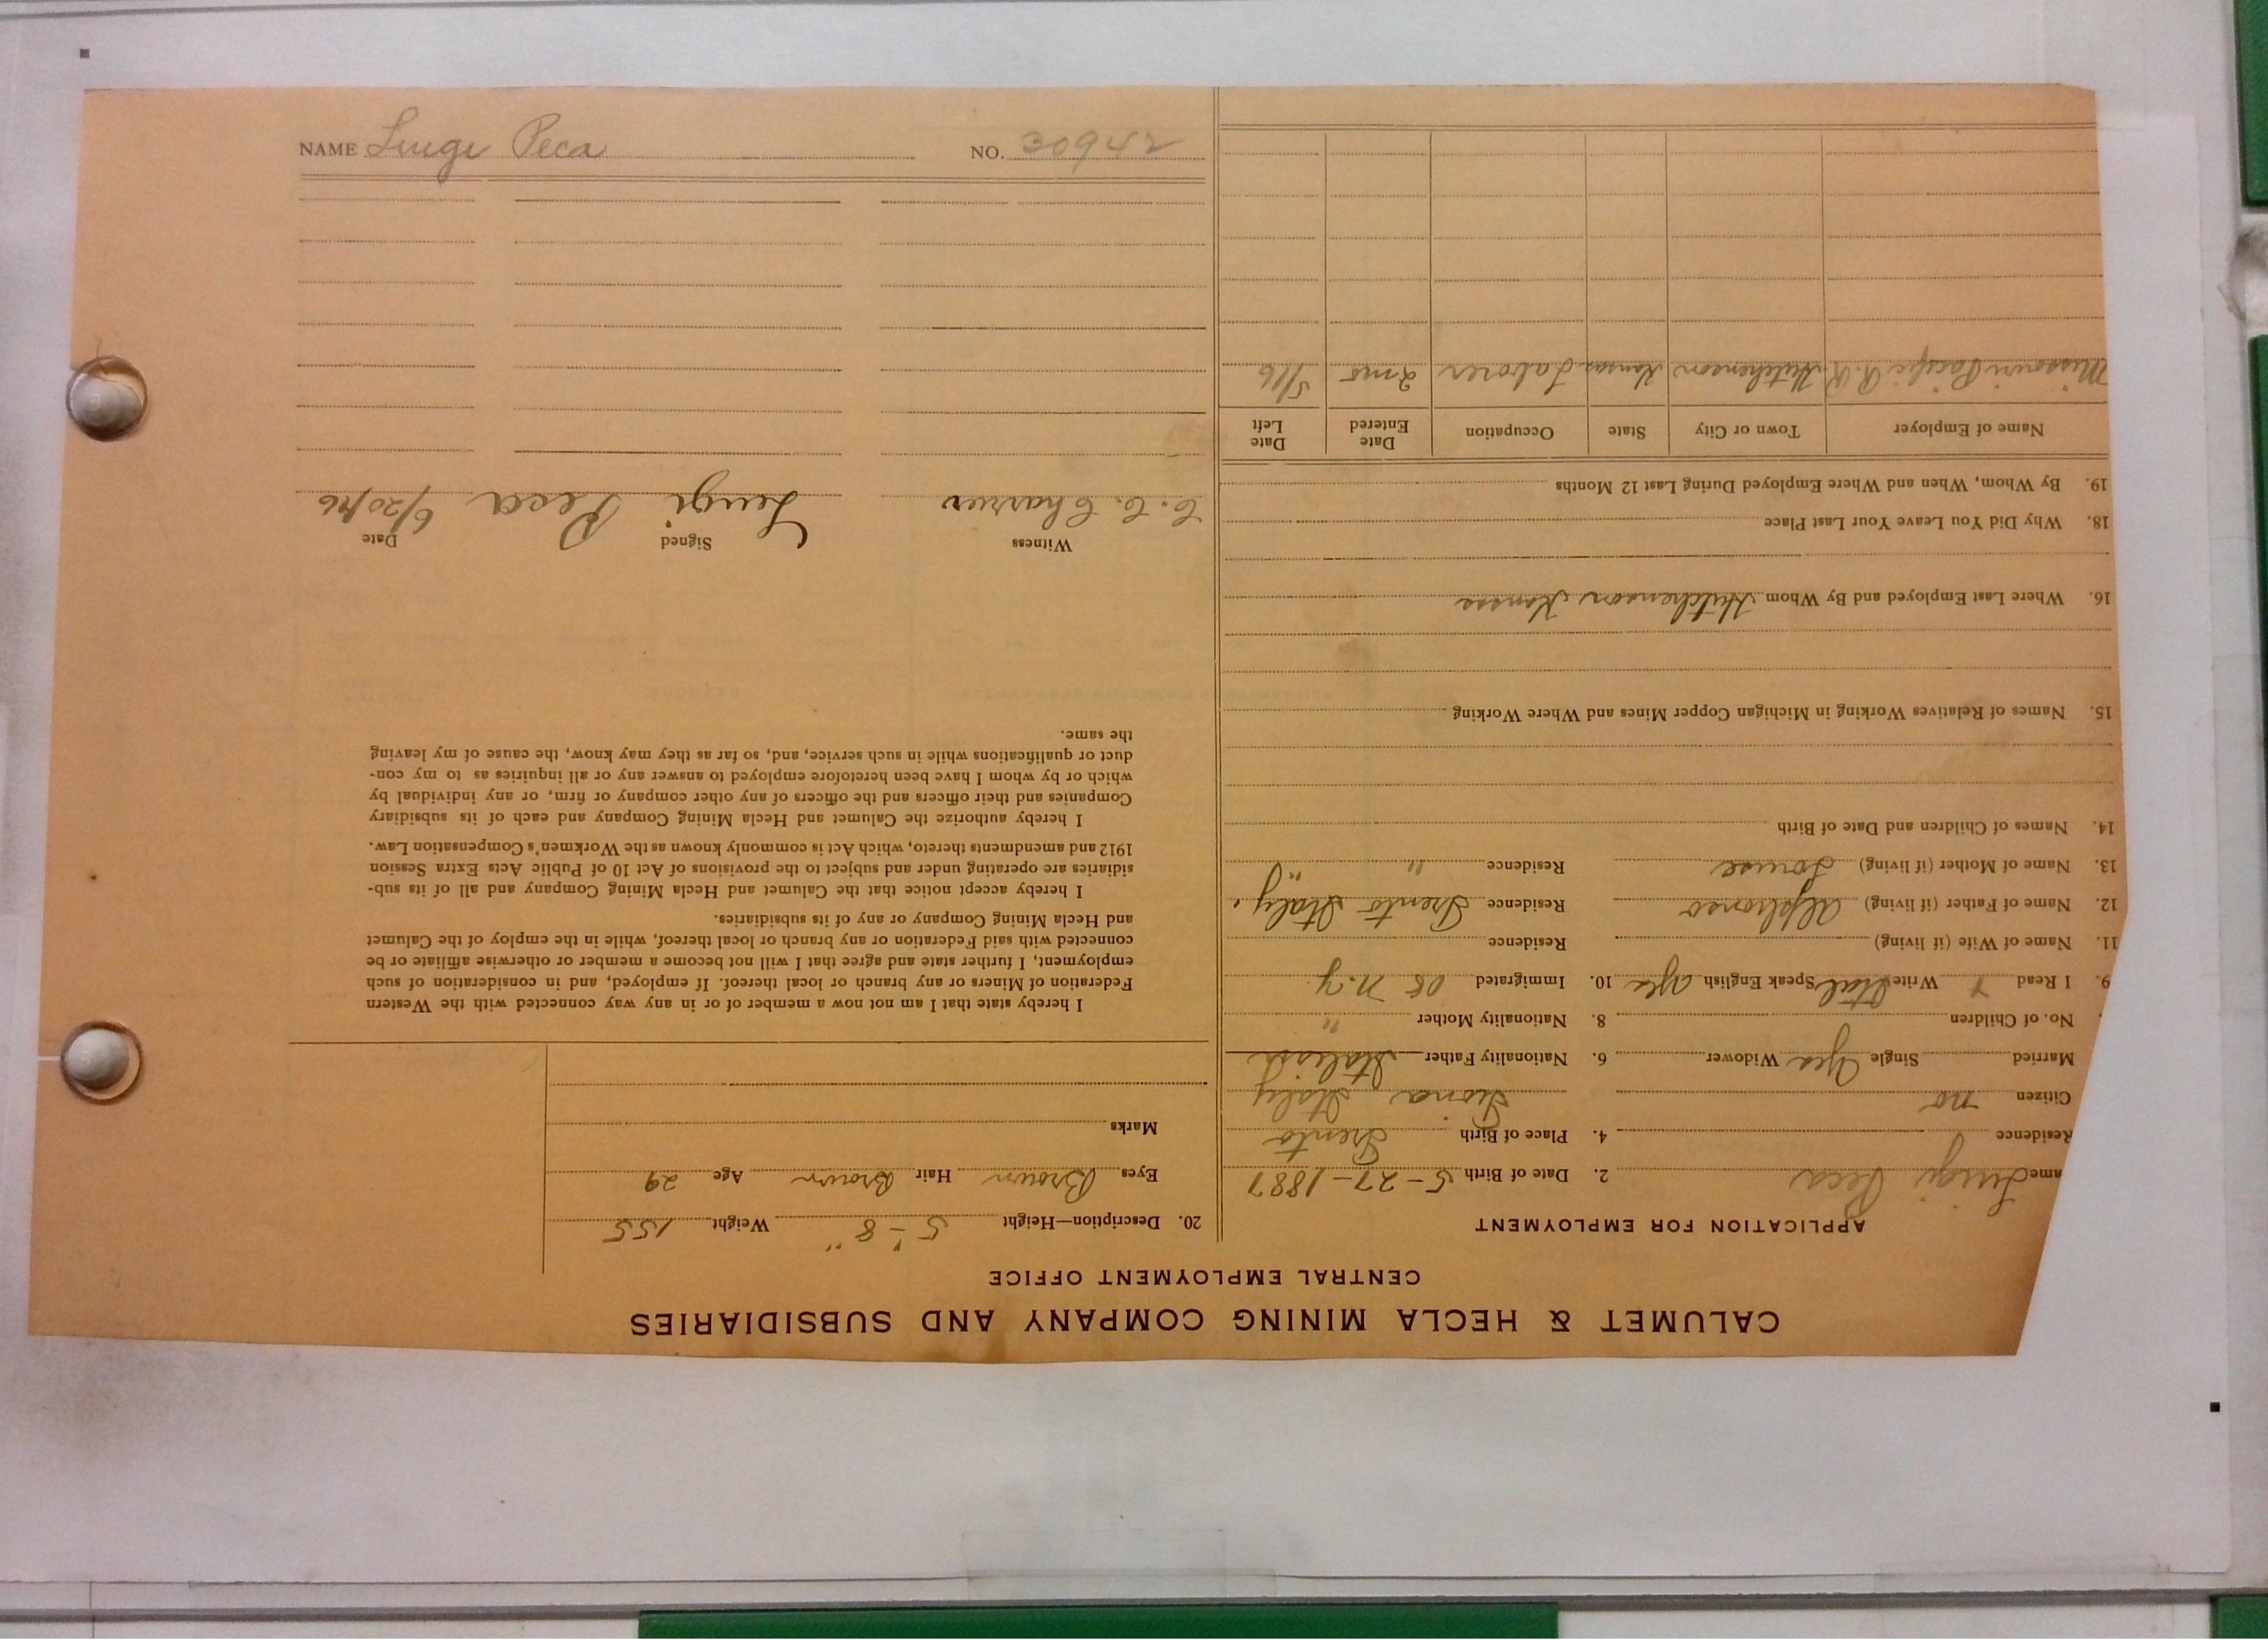 NAME Luigi Peca NO. 30942
CALUMET & HECLA MINING COMPANY AND SUBSIDIARIES
CENTRAL EMPLOYMENT OFFICE
APPLICATION FOR EMPLOYMENT
ame Luigi Peca 2. Date of Birth 5-27-1887
Residence 4. Place of Birth Trento
Citizen no Italy
Married Single Yes Widower 6. Nationality Father Italian
No. of Children 8. Nationality Mother "
9. I Read Write Ital Speak English Yes 10. Immigrated 08 N.Y.
11. Name of Wife (if living) Residence
12. Name of Father (if living) Alphonso Residence Trento Italy
13. Name of Mother (if living) Louise Residence " "
14. Names of Children and Date of Birth
15. Names of Relatives Working in Michigan Copper Mines and Where Working
16. Where Last Employed and By Whom Hutchenson Kansas
18. Why Did You Leave Your Last Place
19. By Whom, When and Where Employed During Last 12 Months
Name of Employer Town or City State Occupation Date Entered Date Left
Missouri Pacific R.R. Hutchenson Kansas Laborer 2 mo 5/16
20. Description—Height 5'-8" Weight 155
Eyes Brown Hair Brown Age 29
Marks
I hereby state that I am not now a member of or in any way connected with the Western
Federation of Miners or any branch or local thereof. If employed, and in consideration of such
employment, I further state and agree that I will not become a member or otherwise affiliate or be
connected with said Federation or any branch or local thereof, while in the employ of the Calumet
and Hecla Mining Company or any of its subsidiaries.
I hereby accept notice that the Calumet and Hecla Mining Company and all of its sub-
sidiaries are operating under and subject to the provisions of Act 10 of Public Acts Extra Session
1912 and amendments thereto, which Act is commonly known as the Workmen's Compensation Law.
I hereby authorize the Calumet and Hecla Mining Company and each of its subsidiary
Companies and their officers and the officers of any other company or firm, or any individual by
which or by whom I have been heretofore employed to answer any or all inquiries as to my con-
duct or qualifications while in such service, and, so far as they may know, the cause of my leaving
the same.
Witness Signed Date
C. C. Luigi Peca 6/20/16